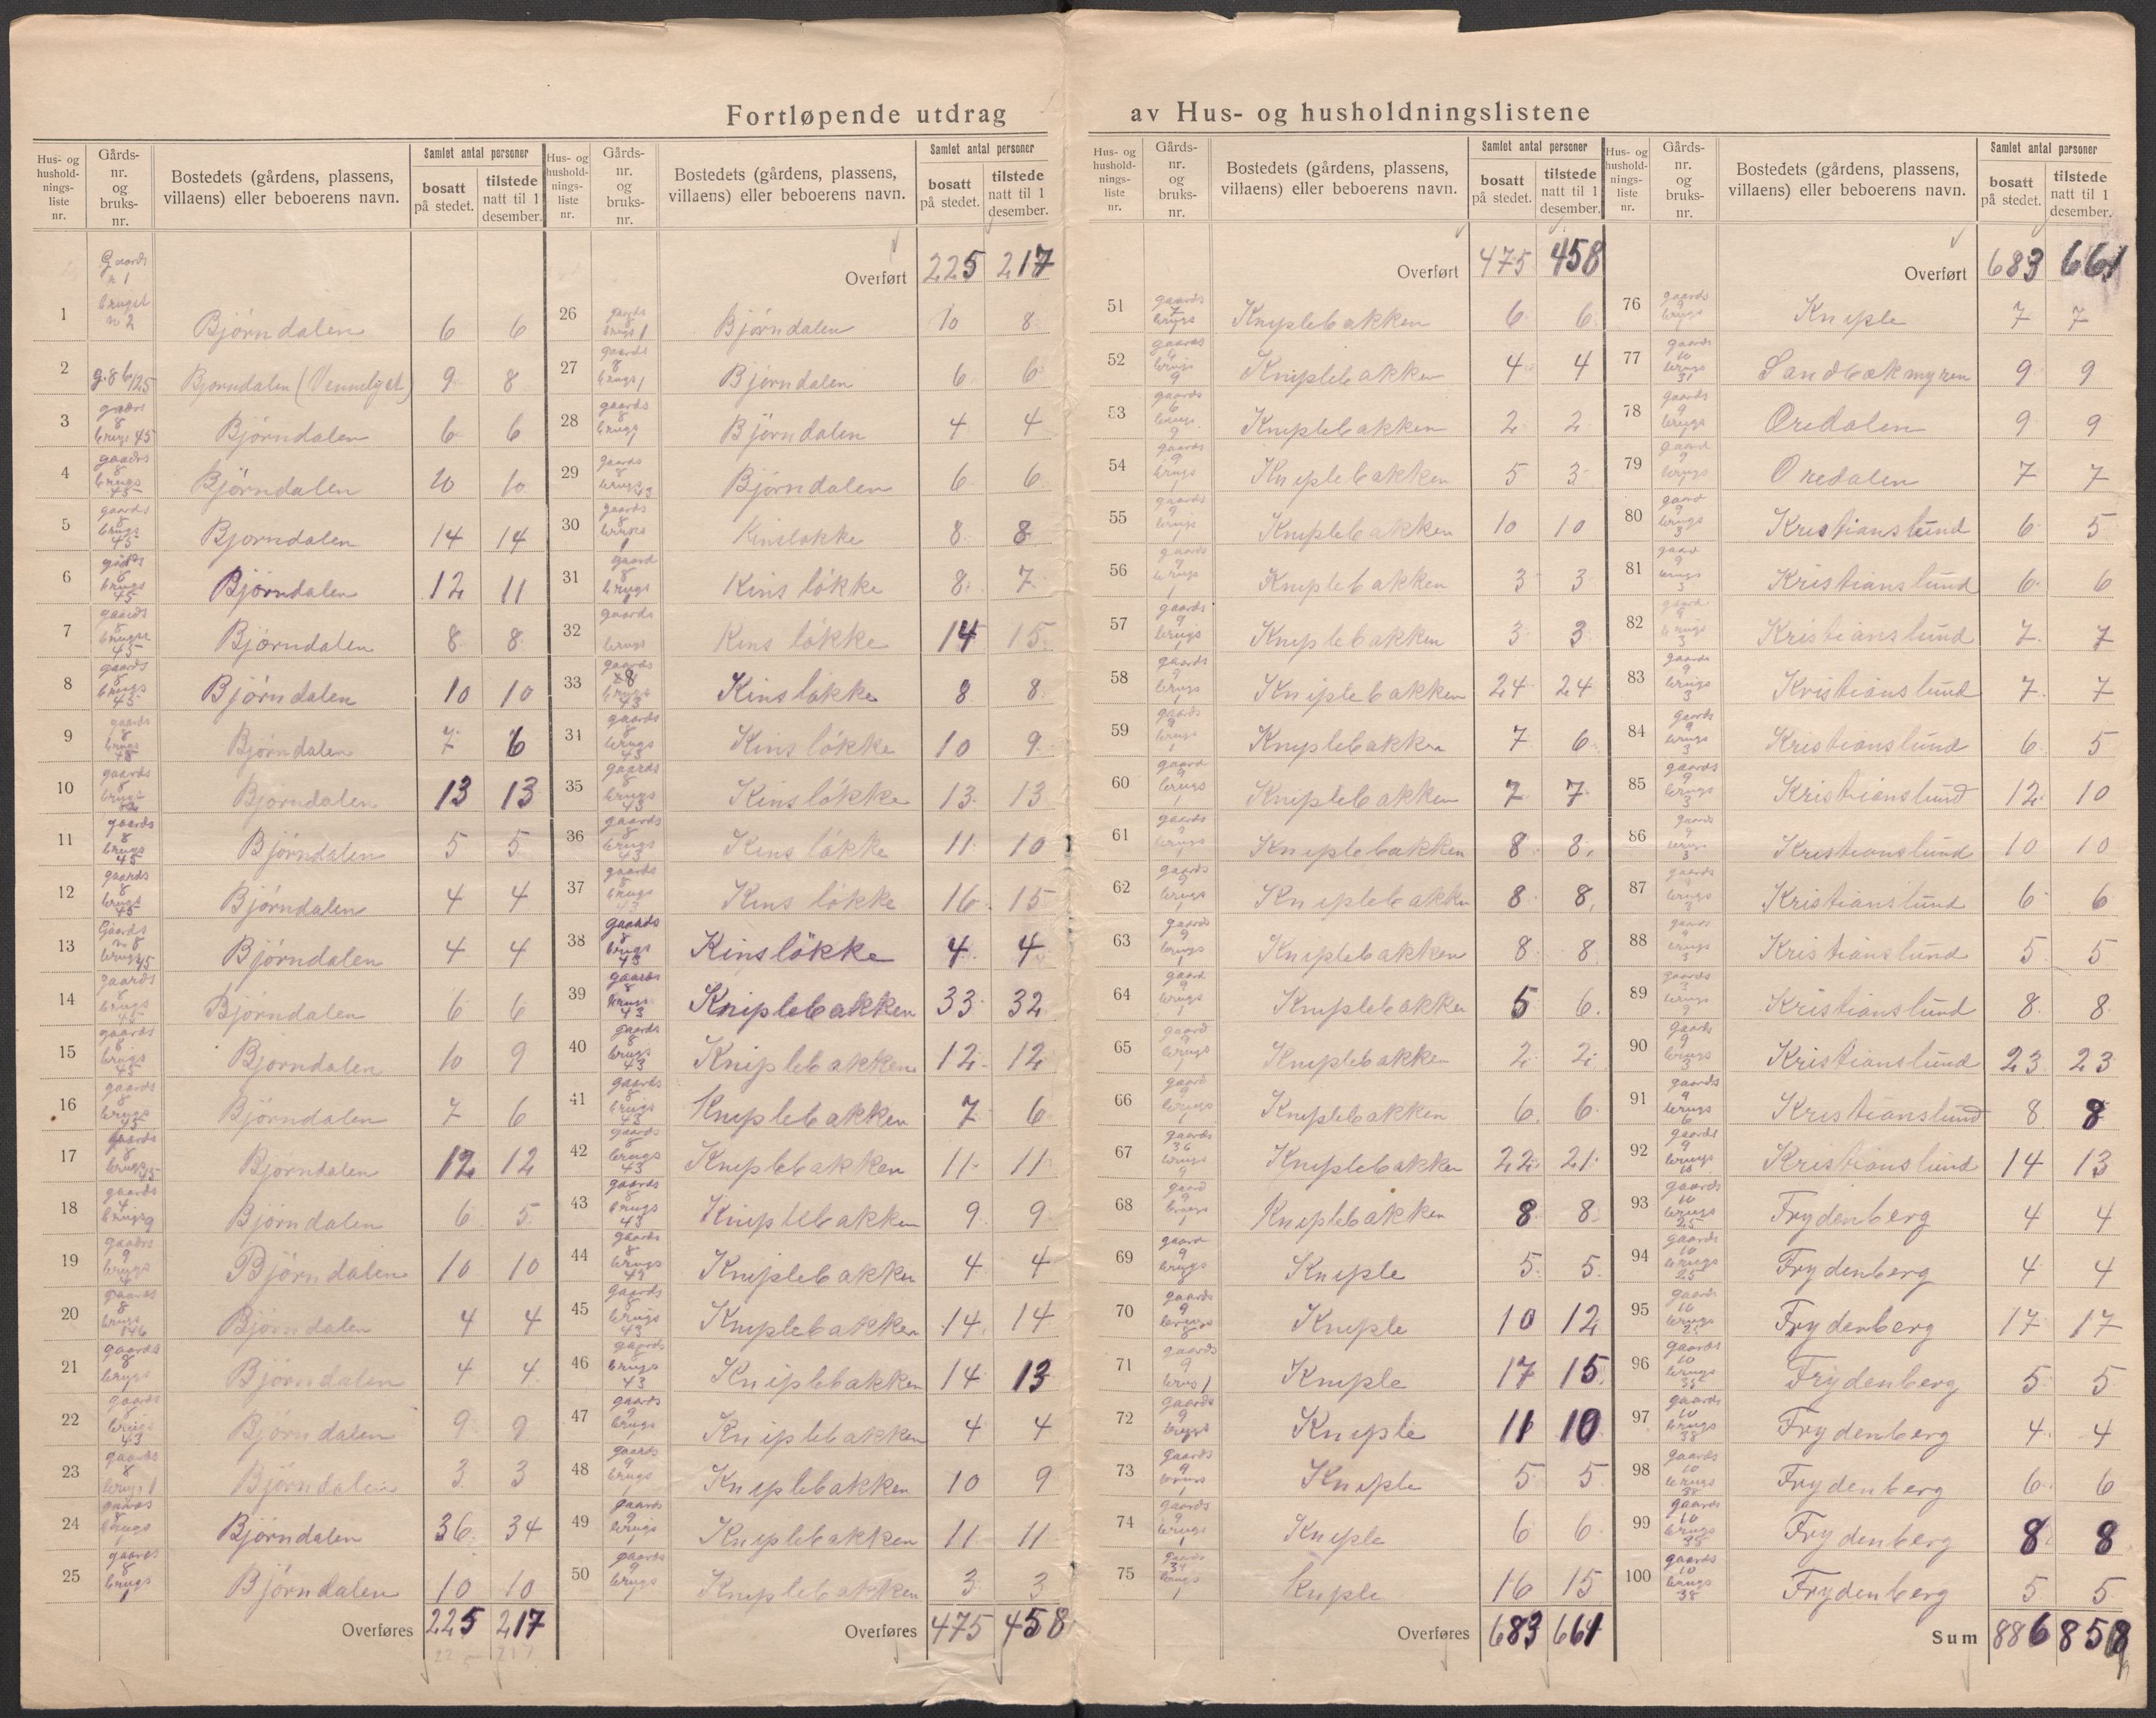 Fortløpende utdrag av Hus- og husholdningslistene
Hus- og husholdnings-liste nr. | Gårds-nr. og bruks-nr. | Bostedets (gårdens, plassens, villaens) eller beboerens navn. | Samlet antal personer: bosatt på stedet. | tilstede natt til 1 desember.
1 Gaards n 1 bruget n 2 Bjørndalen 6 6
2 Bjørndalen 9 8
3 gaards 8 brugs 45 Bjørndalen 6 6
4 gaards 8 brugs 45 Bjørndalen 10 10
5 gaards 8 brugs 45 Bjørndalen 14 14
6 gaards 8 brugs 45 Bjørndalen 12 11
7 gaards 8 45 Bjørndalen 8 8
8 gaards 8 brugs 45 Bjørndalen 10 10
9 gaards 8 brugs Bjørndalen 7 6
10 gaards 8 brugs Bjørndalen 13 13
11 gaards 8 brugs 45 Bjørndalen 5 5
12 gaards 8 brugs 45 Bjørndalen 4 4
13 Gaards n 8 brugs 45 Bjørndalen 4 4
14 gaards 8 brugs 45 Bjørndalen 6 6
15 gaards 8 brugs 45 Bjørndalen 10 9
16 gaards 8 brugs 45 Bjørndalen 7 6
17 gaards 8 brugs 45 Bjørndalen 12 12
18 gaards 4 brugs 9 Bjørndalen 6 5
19 gaards 9 brugs 4 Bjørndalen 10 10
20 gaards 8 brugs 146 Bjørndalen 4 4
21 gaards 8 brugs Bjørndalen 4 4
22 gaards 8 brugs 43 Bjørndalen 9 9
23 gaards 8 brugs 1 Bjørndalen 3 3
24 gaards 8 brugs 1 Bjørndalen 36 34
25 gaards 8 brugs 1 Bjørndalen 10 10
Overføres 225 217
Hus- og husholdnings-liste nr. | Gårds-nr. og bruks-nr. | Bostedets (gårdens, plassens, villaens) eller beboerens navn. | Samlet antal personer: bosatt på stedet. | tilstede natt til 1 desember.
Overført 225 217
26 gaards 8 brugs 1 Bjørndalen 10 8
27 gaards 8 brugs 1 Bjørndalen 6 6
28 gaards 8 brugs 1 Bjørndalen 4 4
29 gaards 8 brugs 43 Bjørndalen 6 6
30 gaards 8 brugs 1 Kinsløkke 8 8
31 gaard 8 brugs Kinsløkke 8 7
32 gaards brugs Kinsløkke 14 15
33 gaards 8 brugs 43 Kinsløkke 8 8
34 gaards 8 brugs 43 Kinsløkke 10 9
35 gaards 8 brugs 43 Kinsløkke 13 13
36 gaards 8 brugs 43 Kinsløkke 11 10
37 gaards 8 brugs 43 Kinsløkke 16 15
38 gaards 8 brugs 43 Kinsløkke 4 4
39 gaards 8 brugs 43 Kniplebakken 33 32
40 gaards 8 brugs 43 Kniplebakken 12 12
41 gaards 8 brugs 43 Kniplebakken 7 6
42 gaards 8 brugs 43 Kniplebakken 11 11
43 gaards 8 brugs 43 Kniplebakken 9 9
44 gaards 8 brugs Kniplebakken 4 4
45 gaards 8 brugs 43 Kniplebakken 14 14
46 gaards 8 brugs 43 Kniplebakken 14 13
47 gaards 9 brugs 1 Kniplebakken 4 4
48 gaards 9 brugs 1 Kniplebakken 10 9
49 gaards 9 brugs 1 Kniplebakken 11 11
50 gaards 9 brugs 1 Kniplebakken 3 3
Overføres 475 458
Hus- og hushold-nings-liste nr. | Gårds-nr. og bruks-nr. | Bostedets (gårdens, plassens, villaens) eller beboerens navn. | Samlet antal personer: bosatt på stedet. | tilstede natt til 1 desember.
Overført 475 458
51 gaards brugs Kniplebakken 6 6
52 gaards brugs 9 Kniplebakken 4 4
53 gaards 6 brugs 9 Kniplebakken 2 2
54 gaards 9 brugs 1 Kniplebakken 5 3
55 gaards 9 brugs 1 Kniplebakken 10 10
56 gaards 9 brugs 1 Kniplebakken 3 3
57 gaards 9 brugs 1 Kniplebakken 3 3
58 gaards 9 brugs 1 Kniplebakken 24 24
59 gaards 9 brugs 1 Kniplebakken 7 6
60 gaard 9 brugs 1 Kniplebakken 7 7
61 gaards 9 brugs 1 Kniplebakken 8 8
62 gaards 9 brugs 1 Kniplebakken 8 8
63 gaards 9 brugs 1 Kniplebakken 8 8
64 gaard 9 brugs 1 Kniplebakken 5 6
65 gaard 9 brugs 1 Kniplebakken 2 2
66 gaard 9 brugs 1 Kniplebakken 6 6
67 gaards 36 brugs 9 Kniplebakken 22 21
68 gaard 9 brugs 1 Kniplebakken 8 8
69 gaard 9 brugs 8 Kniple 5 5
70 gaards 9 brugs 8 Kniple 10 12
71 gaards 9 brugs 1 Kniple 17 15
72 gaards 9 brugs Kniple 11 10
73 gaards 9 brugs 1 Kniple 5 5
74 gaards 9 brugs 1 Kniple 6 6
75 gaards brugs 1 Kniple 16 15
Overføres 683 661
Hus- og hushold-nings-liste nr. | Gårds-nr. og bruks-nr. | Bostedets (gårdens, plassens, villaens) eller beboerens navn. | Samlet antal personer: bosatt på stedet. | tilstede natt til 1 desember.
Overført 683 661
76 gaards 9 brugs 1 Kniple 7 7
77 gaard 10 brugs 31 Sandbækmyren 9 9
78 gaards 9 brugs 1 Oredalen 9 9
79 gaard 9 brugs Oredalen 7 7
80 gaard 9 brugs 3 Kristianslund 6 5
81 gaard 9 brugs 3 Kristianslund 6 6
82 gaard 9 brugs 3 Kristianslund 7 7
83 gaards 9 brugs 3 Kristianslund 7 7
84 gaards 9 brugs 3 Kristianslund 6 5
85 gaards 9 brugs 3 Kristianslund 12 10
86 gaards 9 brugs 3 Kristianslund 10 10
87 gaards 9 brugs 3 Kristianslund 6 6
88 gaards 9 brugs 3 Kristianslund 5 5
89 gaards brugs Kristianslund 8 8
90 gaards 9 brugs 3 Kristianslund 23 23
91 gaards 9 brugs 6 Kristianslund 8 8
92 gaards 9 brugs Kristianslund 14 13
93 gaards 10 brugs 25 Frydenberg 4 4
94 gaards 10 brugs 25 Frydenberg 4 4
95 gaards 10 brugs 25 Frydenberg 17 17
96 gaards 10 brugs Frydenberg 5 5
97 gaards 10 brugs 38 Frydenberg 4 4
98 gaards 10 brugs 38 Frydenberg 6 6
99 gaards 10 brugs 38 Frydenberg 8 8
100 gaards 10 brugs 38 Frydenberg 5 5
Sum 886 858